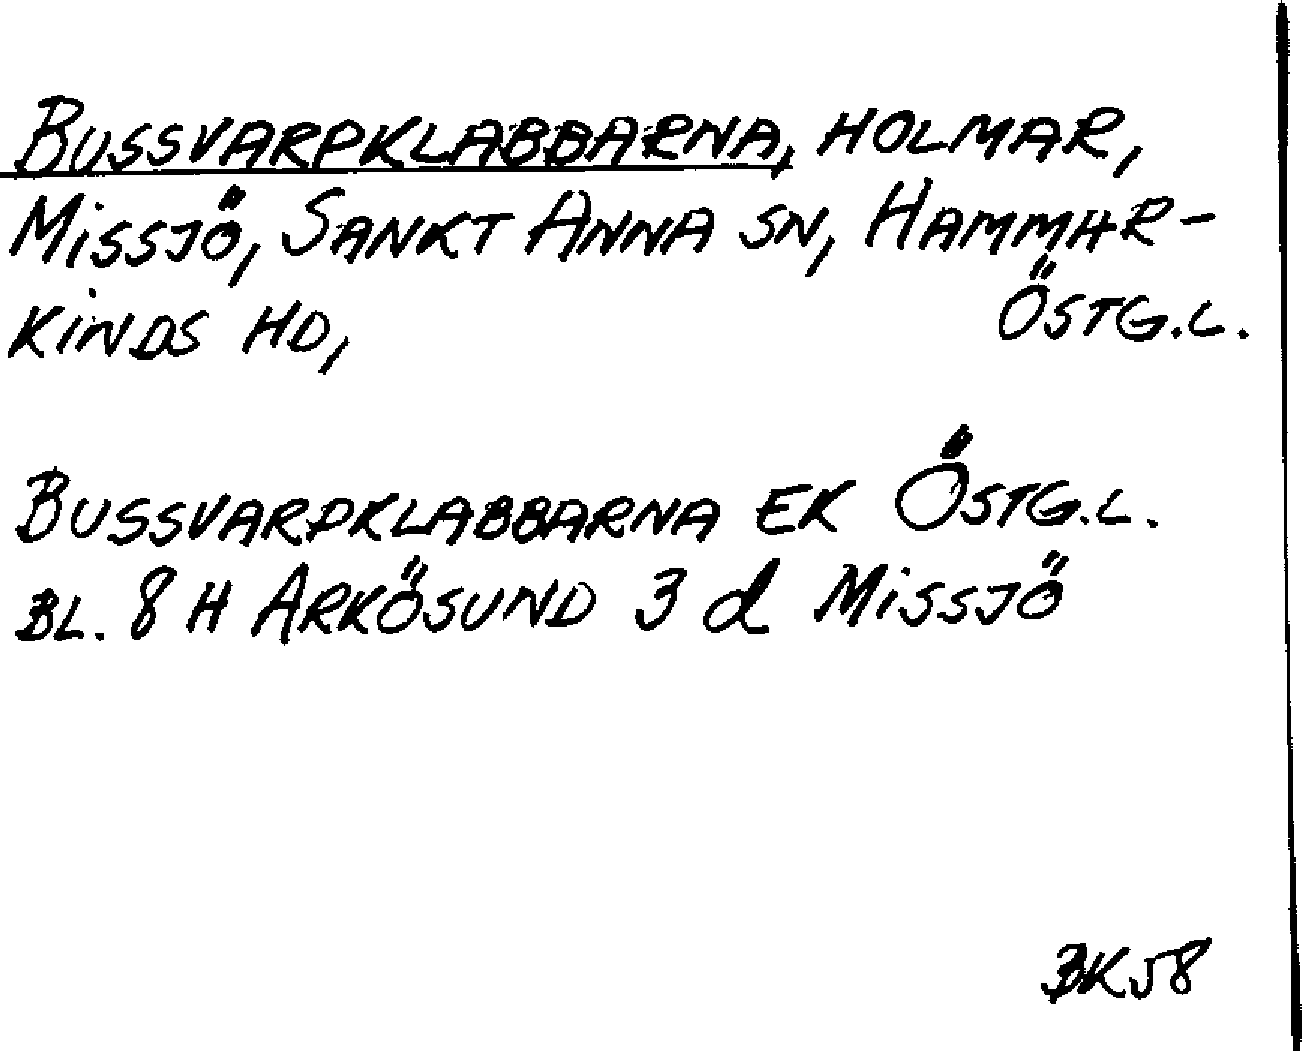 BUSSVARPKLABBARNA, HOLMAR,
MISSJÖ, SANKT ANNA SN, HAMMAR-
KINDS HD, ÖSTG.L.
BUSSVARPKLABBARNA EK ÖSTG.L.
BL. 8 H ARKÖSUND 3 d MISSJÖ
BK58